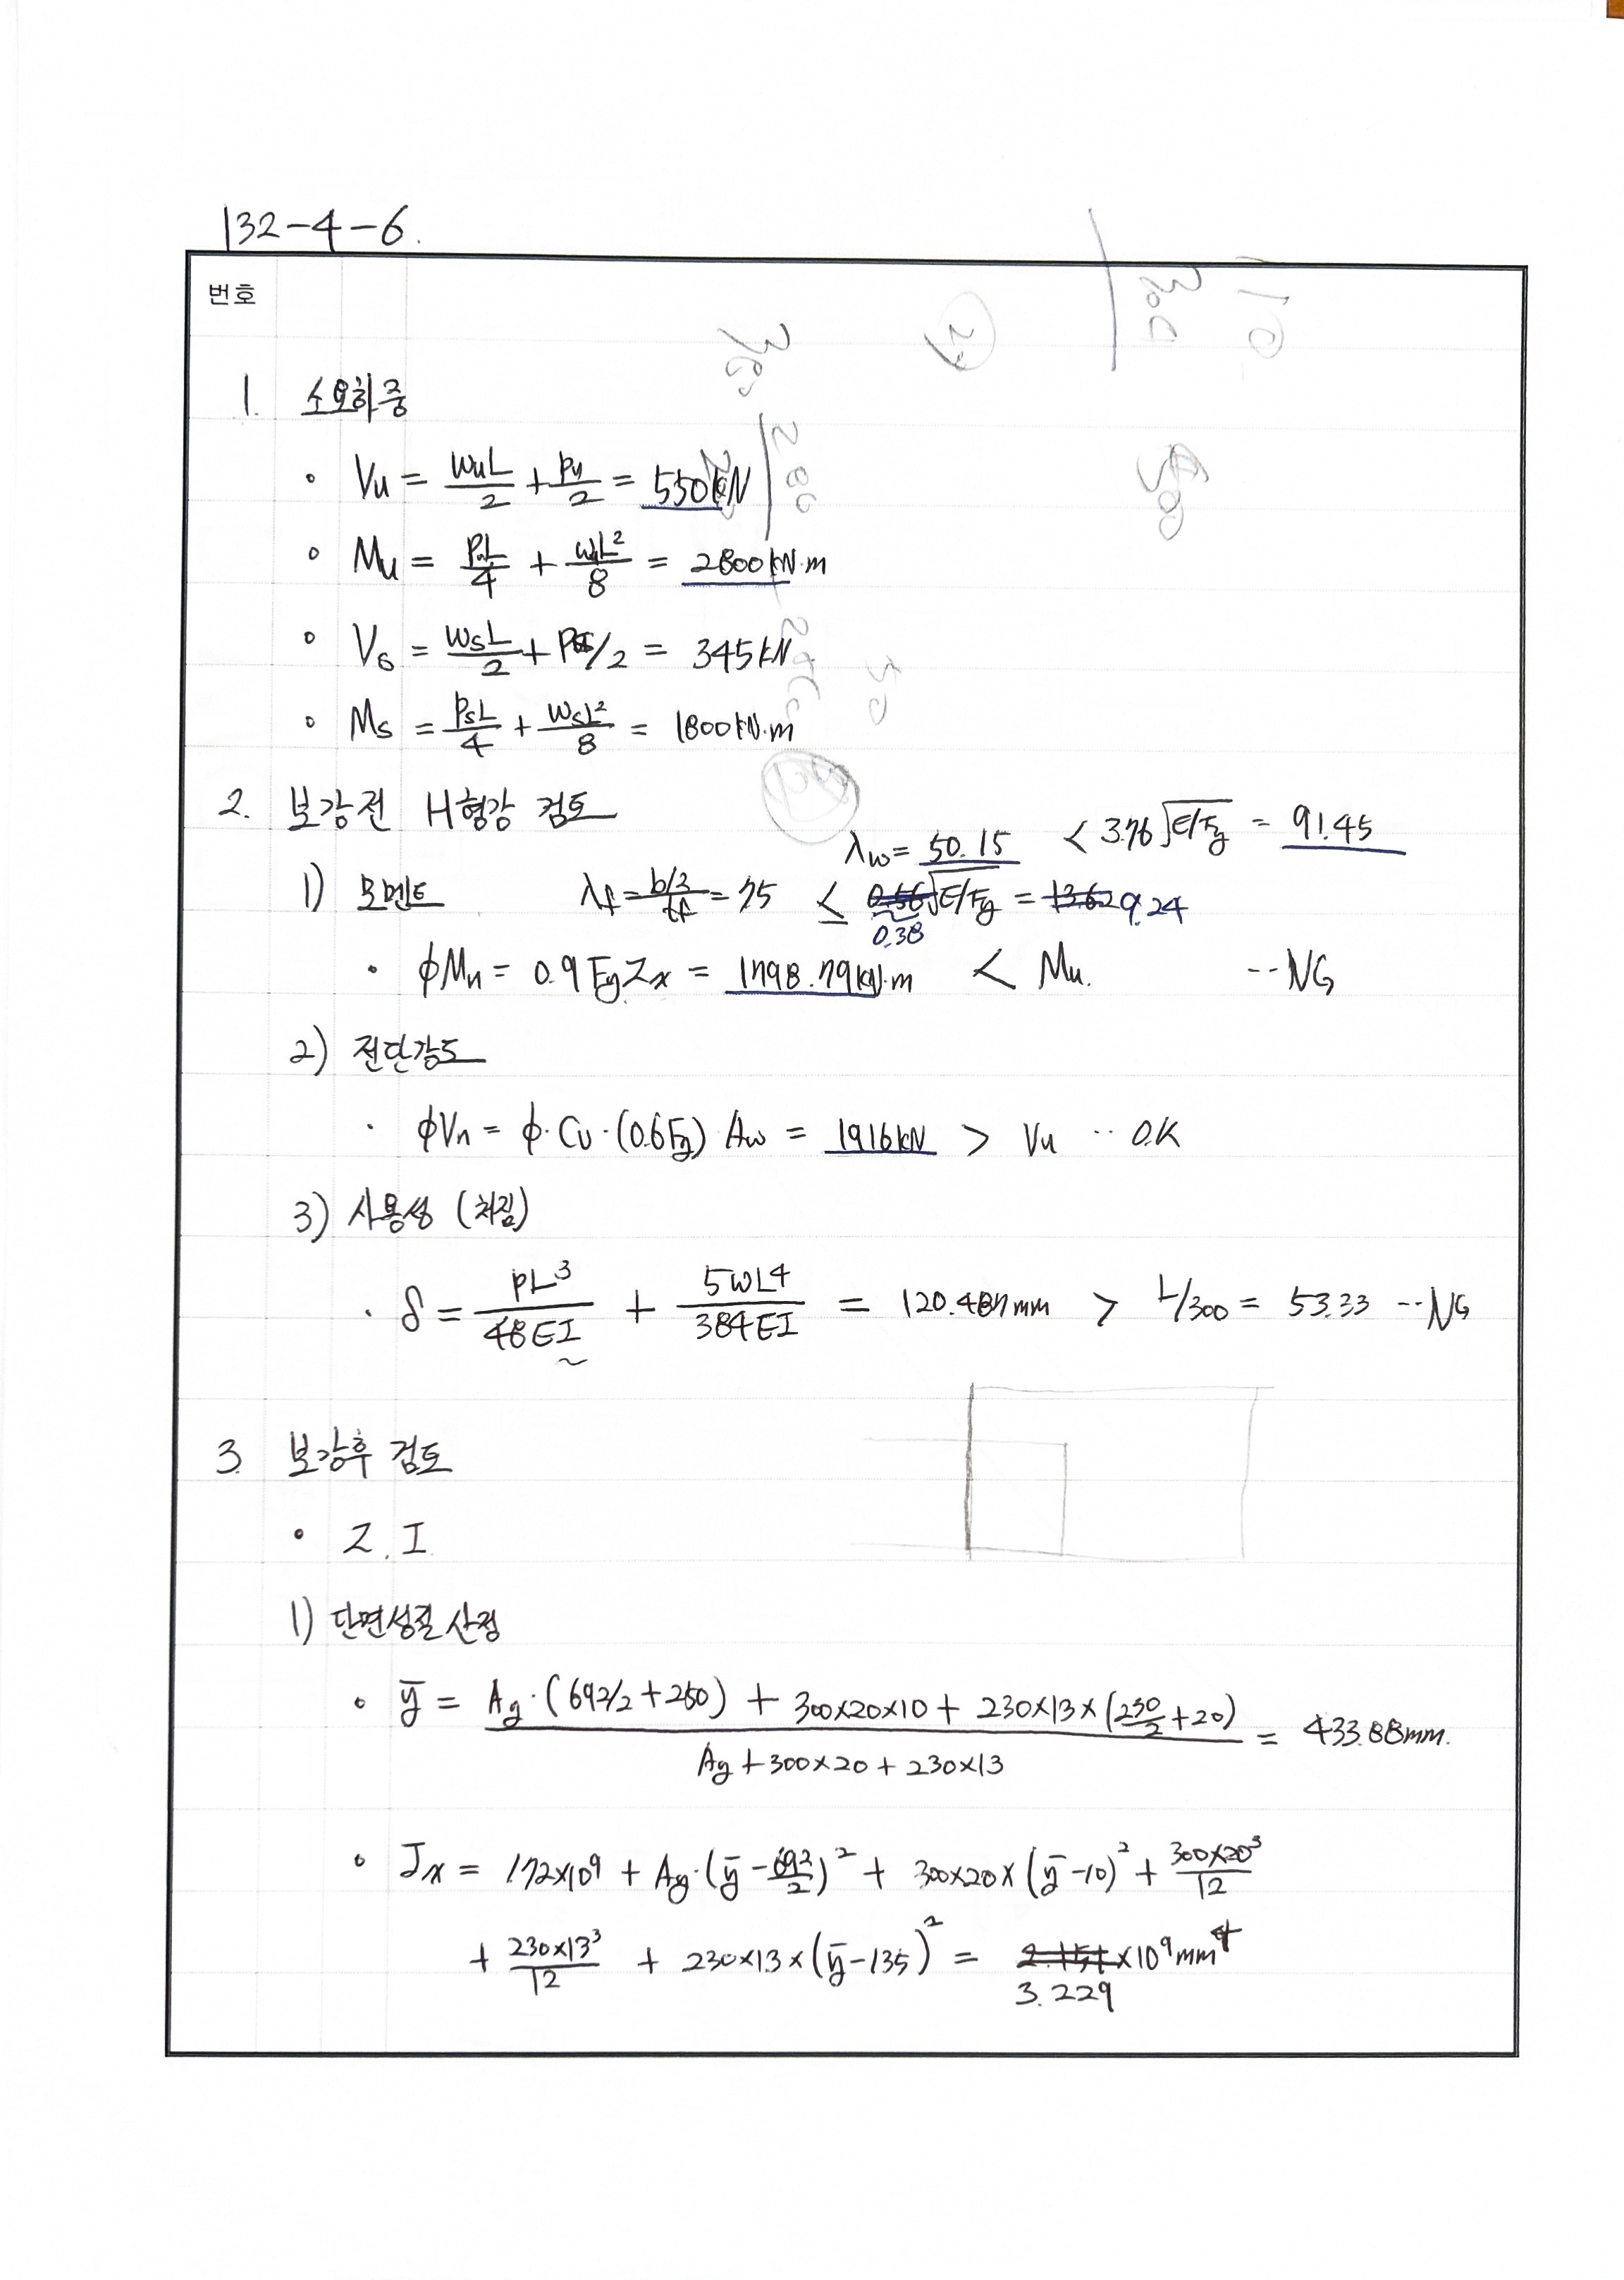 132-4-6.
번호
1. 소요하중
• Vu = WuL/2 + Pu/2 = 550kN
• Mu = PuL/4 + WuL²/8 = 2800kN·m
• Vs = WsL/2 + Ps/2 = 345kN
• Ms = PsL/4 + WsL²/8 = 1800kN·m
2. 보강전 H형강 검토
λw = 50.15 < 3.76√E/Fy = 91.45
1) 모멘트 λf = b/2/tf = 7.5 ≤ 0.38√E/Fy = 9.24
• φMn = 0.9 Fy Zx = 1798.79kN·m < Mu. --NG
2) 전단강도
• φVn = φ·Cv·(0.6Fy)·Aw = 1916kN > Vu ·· O.K
3) 사용성 (처짐)
• δ = PL³/48EI + 5WL4/384EI = 120.487mm > L/300 = 53.33 --NG
3. 보강후 검토
• Z, I
1) 단면성질 산정
• ȳ = Ag·(692/2+250) + 300×20×10 + 230×13×(230/2+20) / Ag+300×20+230×13 = 433.88mm.
• Ix = 1.72×10⁹ + Ag·(ȳ-692/2)² + 300×20×(ȳ-10)² + 300×20³/12
+ 230×13³/12 + 230×13×(ȳ-135)² = 3.229×10⁹mm⁴